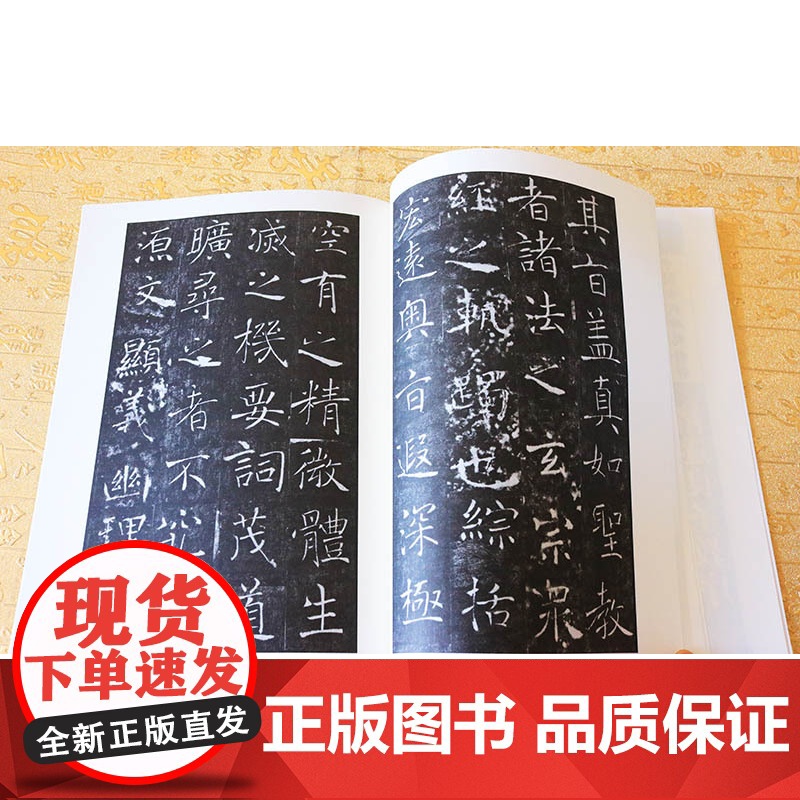 其旨盖真如聖教
者諸法之玄宗衆
經之軌躅也綜括
宏遠奥旨遐深極
空有之精微體生
滅之機要詞茂道
曠尋之者不究
源文顯義幽理
现货
下单速发
全新正版直发
正版图书 品质保证